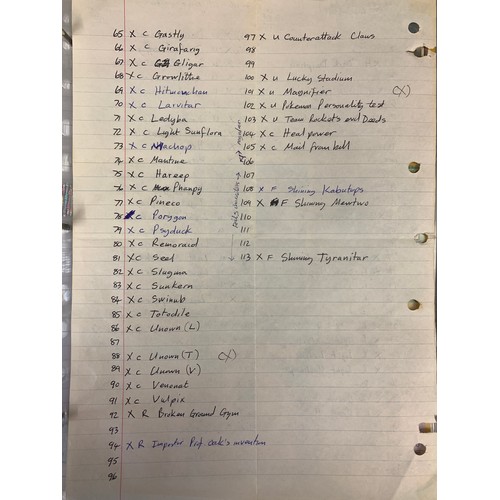 65 X C Gastly
66 X C Girafarig
67 X C Gligar
68 X C Growlithe
69 X C Hitmonchan
70 X C Larvitar
71 X C Ledyba
72 X C Light Sunflora
73 X C Machop
74 X C Mantine
75 X C Hareep
76 X C Phanpy
77 X C Pineco
78 X C Porygon
79 X C Psyduck
80 X C Remoraid
81 X C Seel
82 X C Slugma
83 X C Sunkern
84 X C Swinub
85 X C Totodile
86 X C Unown (L)
87
88 X C Unown (T) (X)
89 X C Unown (V)
90 X C Venonat
91 X C Vulpix
92 X R Broken Ground Gym
93
94 X R Imposter Prof. Oak's invention
95
96
97 X U Counterattack Claws
98
99
100 X U Lucky Stadium
101 X U Magnifier (X)
102 X U Pokemon Personality test
103 X U Team Rockets evil Deeds
104 X C Heal power
105 X C Mail from bill
106
107
108 X F Shining Kabutops
109 X F Shining Mewtwo
110
111
112
113 X F Shining Tyranitar